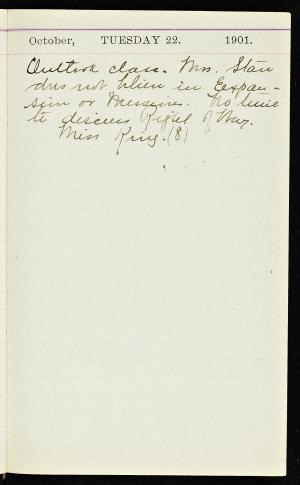 October, TUESDAY 22. 1901.
Outlook class. Mrs. Starr
does not believe in Expan-
sion or Missions. No time
to discuss Right of Way.
Miss King. (8)